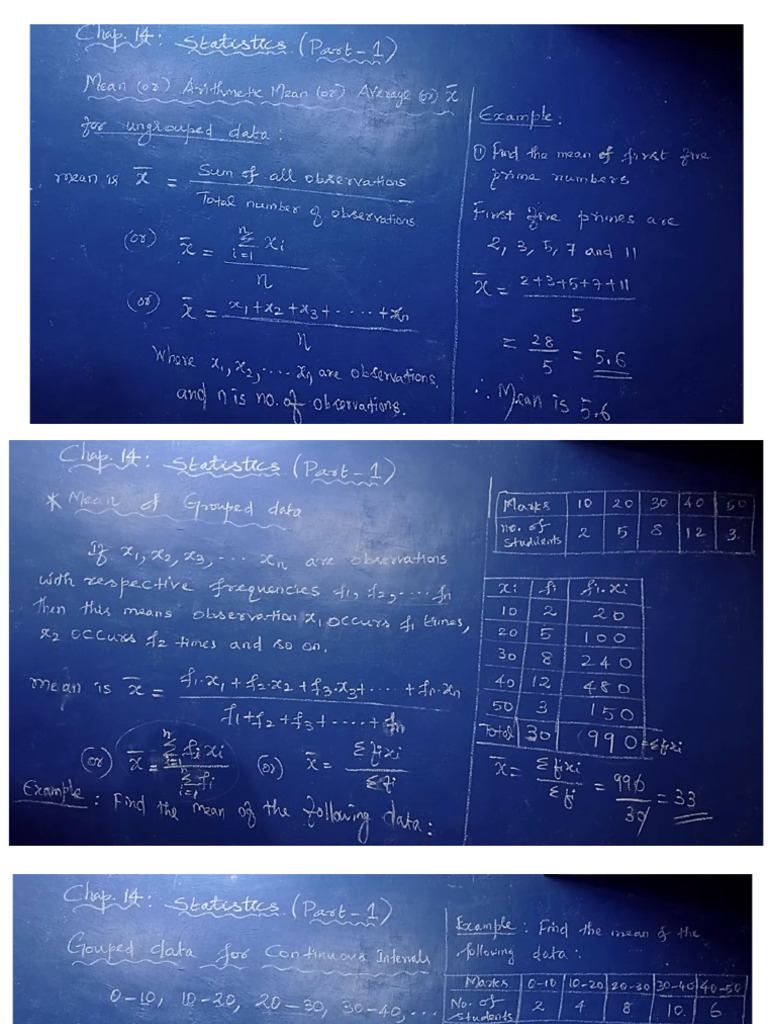 Chap. 14: Statistics (Part-1)
Mean (or) Arithmetic Mean (or) Average (or) x̄
for ungrouped data:
mean is x̄ = Sum of all observations / Total number of observations
(or) x̄ = Σ_{i=1}^{n} xi / n
(or) x̄ = x1+x2+x3+.....+xn / n
Where x1, x2, .... xn are observations.
and n is no. of observations.
Example:
(1) Find the mean of first five
prime numbers
First five primes are
2, 3, 5, 7 and 11
x̄ = 2+3+5+7+11 / 5
= 28/5 = 5.6
∴ Mean is 5.6
Chap. 14: Statistics (Part-1)
* Mean of Grouped data
If x1, x2, x3, ... xn are observations
with respective frequencies f1, f2, .... fn
then this means observation x1 occurs f1 times,
x2 occurs f2 times and so on.
mean is x̄ = f1.x1+f2.x2+f3.x3+....+fn.xn / f1+f2+f3+.....+fn
(or) x̄ = Σ_{i=1}^{n} fixi / Σ_{i=1}^{n} fi (or) x̄ = Σfixi / Σfi
Example: Find the mean of the following data:
Marks 10 20 30 40 50
No. of Students 2 5 8 12 3
xi fi fi.xi
10 2 20
20 5 100
30 8 240
40 12 480
50 3 150
Total 30 990 = Σfixi
x̄ = Σfixi / Σfi = 990/30 = 33
Chap. 14: Statistics (Part-1)
Gouped data for Continuous Intervals
0-10, 10-20, 20-30, 30-40, ...
Example: Find the mean of the
following data:
Marks 0-10 10-20 20-30 30-40 40-50
No. of Students 2 4 8 10 6